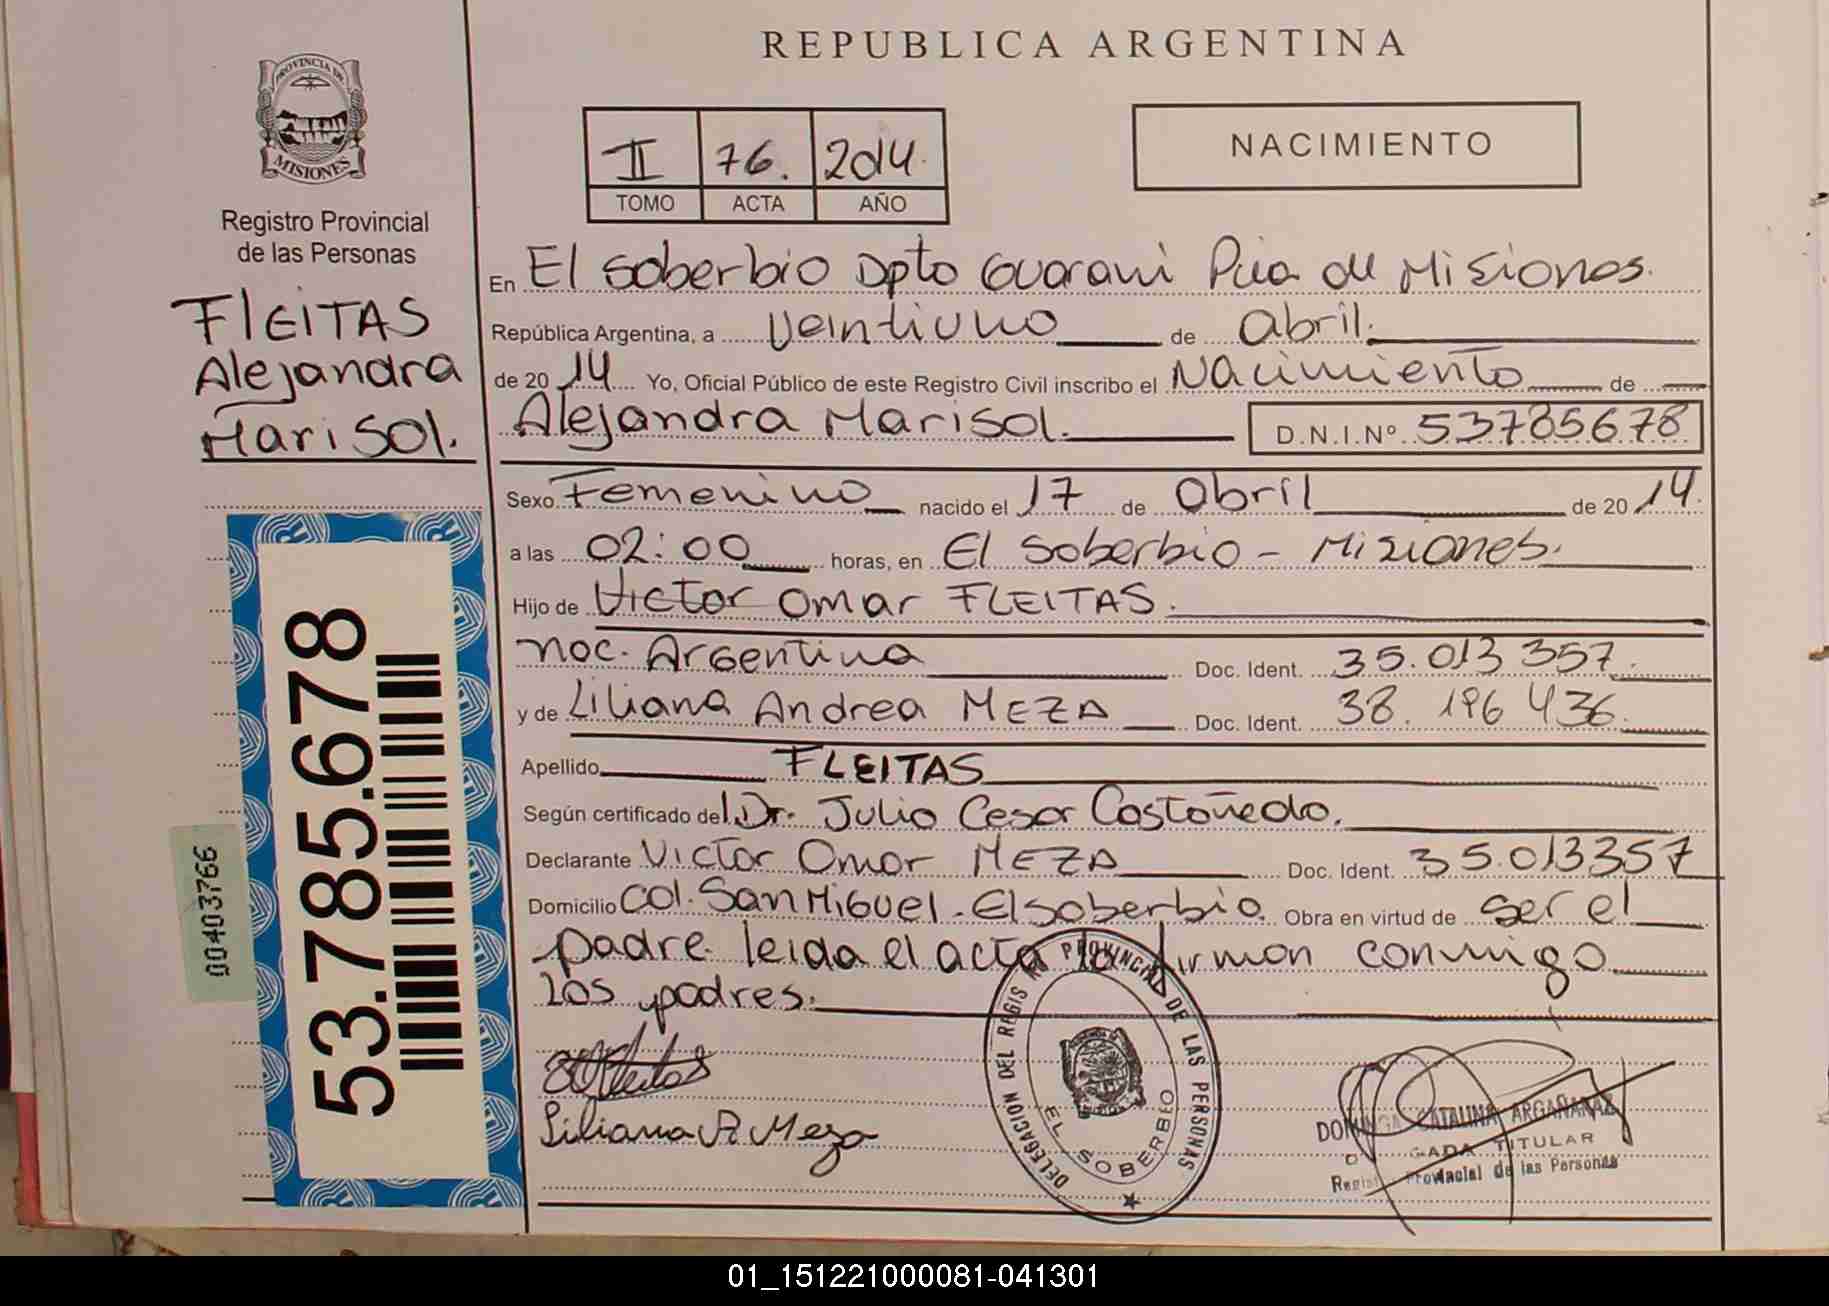 REPUBLICA ARGENTINA
PROVINCIA DE
MISIONES
Registro Provincial
de las Personas
FLEITAS
Alejandra
Marisol.
53.785.678
00403766
II 76. 2014
TOMO ACTA AÑO
NACIMIENTO
En El Soberbio Dpto Guarani Pcia de Misiones.
República Argentina, a Veintiuno de abril.
de 20 14 Yo, Oficial Público de este Registro Civil inscribo el Nacimiento de
Alejandra Marisol. D.N.I.Nº 53785678
Sexo Femenino nacido el 17 de abril de 20 14.
a las 02:00 horas, en El Soberbio - Misiones.
Hijo de Victor Omar FLEITAS.
nac. Argentina Doc. Ident. 35.013 357.
y de Liliana Andrea MEZA Doc. Ident. 38. 196 436.
Apellido FLEITAS
Según certificado del Dr. Julio Cesar Castañedo.
Declarante Victor Omar MEZA Doc. Ident. 35.013357
Domicilio Col. San Miguel - El soberbio. Obra en virtud de ser el
padre. leida el acta la firman conmigo
los padres.
Liliana A Meza
DELEGACIÓN DEL REGISTRO PROVINCIAL DE LAS PERSONAS
EL SOBERBIO
CATALINA ARGAÑARAZ
TITULAR
Provincial de las Personas
01_151221000081-041301